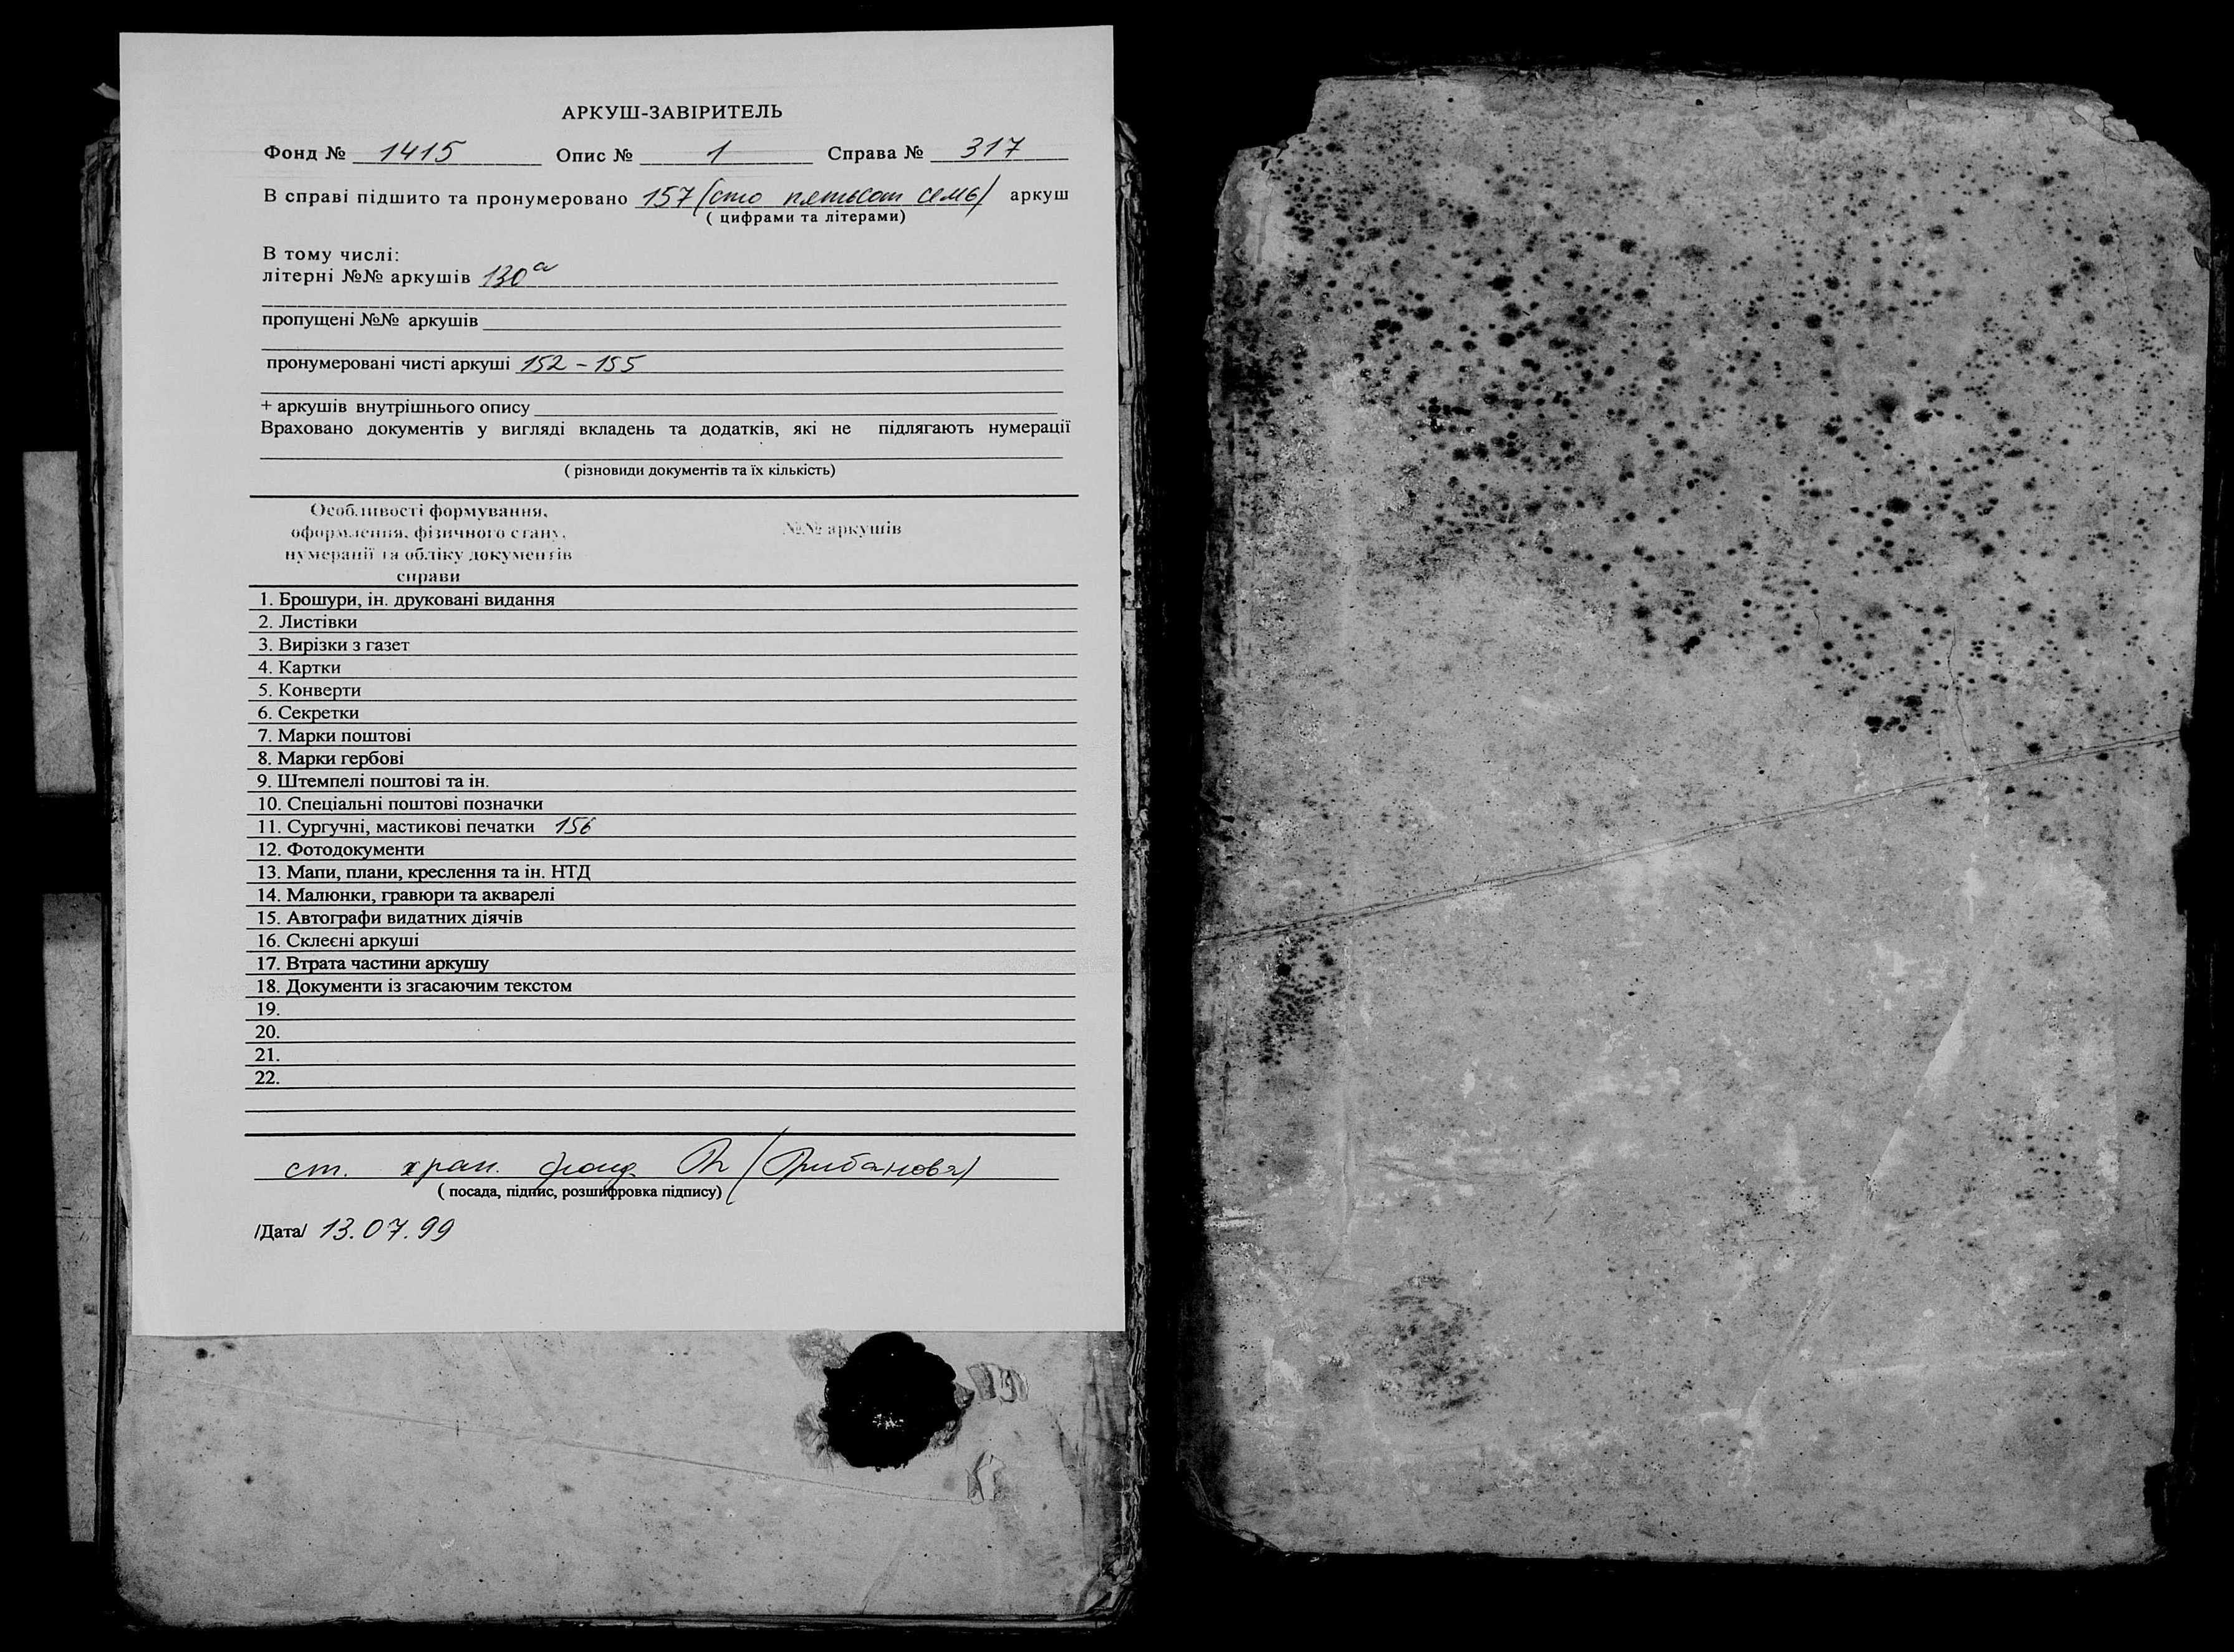 АРКУШ-ЗАВІРИТЕЛЬ
Фонд № 1415 Опис № 1 Справа № 317
В справі підшито та пронумеровано 157 (сто пятьсот семь) аркуш
( цифрами та літерами)
В тому числі:
літерні №№ аркушів 130а
пропущені №№ аркушів
пронумеровані чисті аркуші 152 - 155
+ аркушів внутрішнього опису
Враховано документів у вигляді вкладень та додатків, які не підлягають нумерації
( різновиди документів та їх кількість)
Особливості формування,
оформлення, фізичного стану,
нумерації та обліку документів
справи
№№ аркушів
1. Брошури, ін. друковані видання
2. Листівки
3. Вирізки з газет
4. Картки
5. Конверти
6. Секретки
7. Марки поштові
8. Марки гербові
9. Штемпелі поштові та ін.
10. Спеціальні поштові позначки
11. Сургучні, мастикові печатки 156
12. Фотодокументи
13. Мапи, плани, креслення та ін. НТД
14. Малюнки, гравюри та акварелі
15. Автографи видатних діячів
16. Склеєні аркуші
17. Втрата частини аркушу
18. Документи із згасаючим текстом
19.
20.
21.
22.
ст. хран. фонд (Грибанова)
( посада, підпис, розшифровка підпису)
/Дата/ 13.07.99